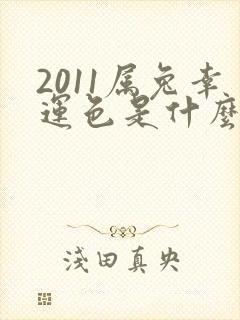 2011属兔幸
運色是什麼
淺田真央